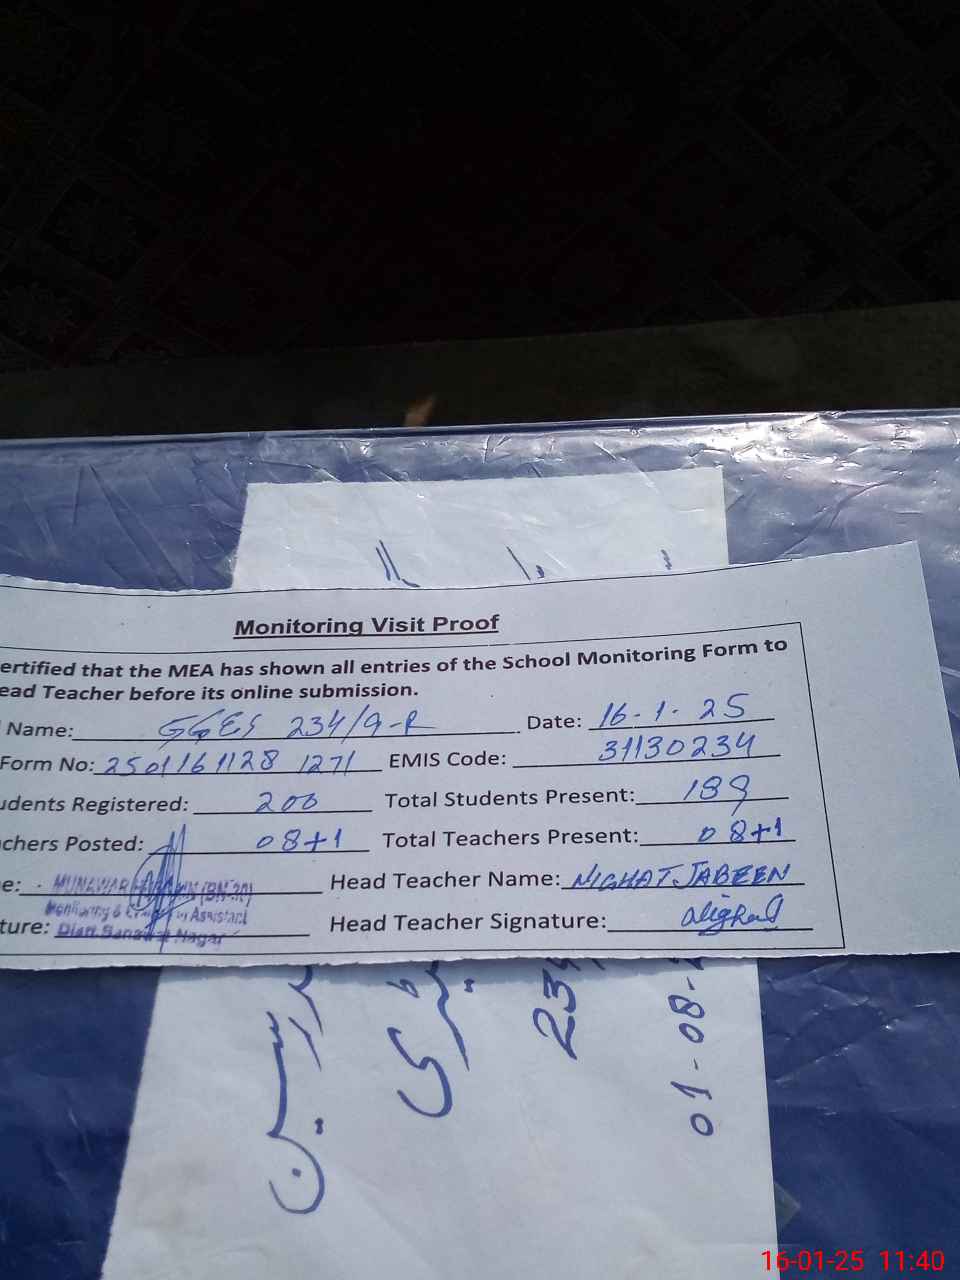 Monitoring Visit Proof
ertified that the MEA has shown all entries of the School Monitoring Form to
ead Teacher before its online submission.
Name: GGES 234/9-R Date: 16-1-25
Form No: 2501161128 1271 EMIS Code: 31130234
udents Registered: 200 Total Students Present: 189
chers Posted: 08+1 Total Teachers Present: 08+1
e: MUNAWAR Head Teacher Name: NIGHAT JABEEN
Monitoring & Assistant
ture: Nagar Head Teacher Signature:
01-08-
16-01-25 11:40